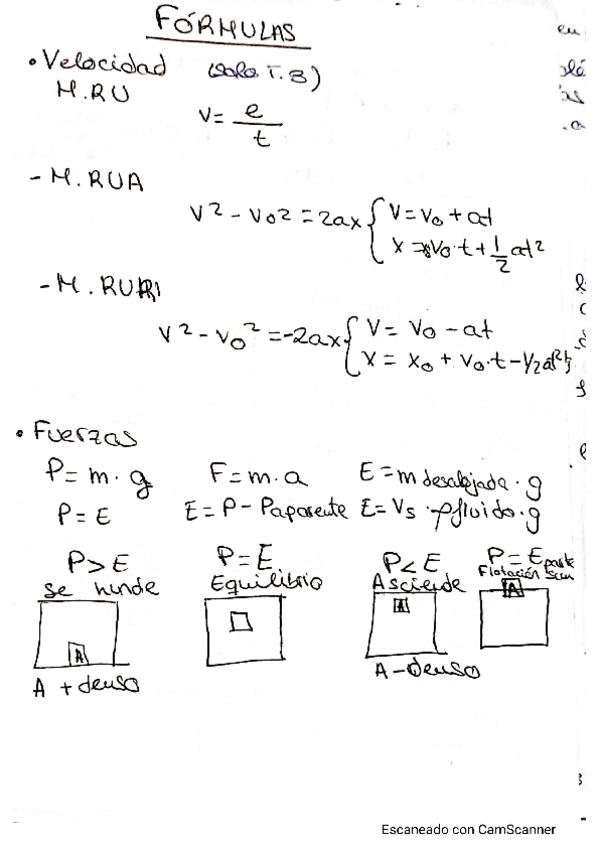 FÓRMULAS
• Velocidad (solo T. 3)
M.RU
V = e/t
- M. RUA
V² - V₀² = 2ax { V = V₀ + at
X = V₀·t + 1/2 at²
- M. RUR
V² - V₀² = -2ax { V = V₀ - at
X = X₀ + V₀·t - 1/2 at²
• Fuerzas
P = m · g F = m · a E = m desalojada · g
P = E E = P - Paparente E = Vs · ρfluido · g
P > E P = E P < E P = E parte
se hunde Equilibrio Asciende Flotación
A A A
A + denso A - denso
Escaneado con CamScanner